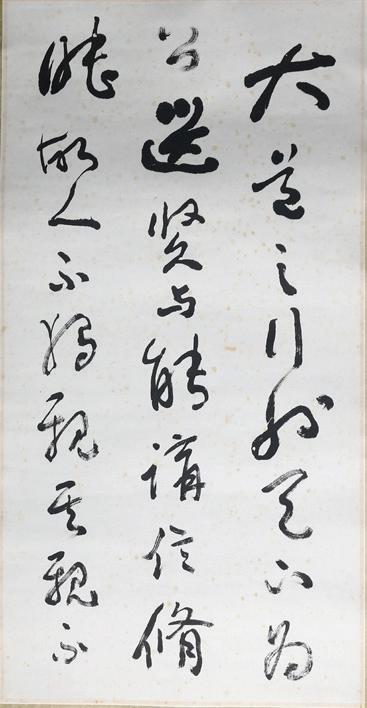 大道之行也天下為
公選賢与能講信脩
睦故人不獨親其親不